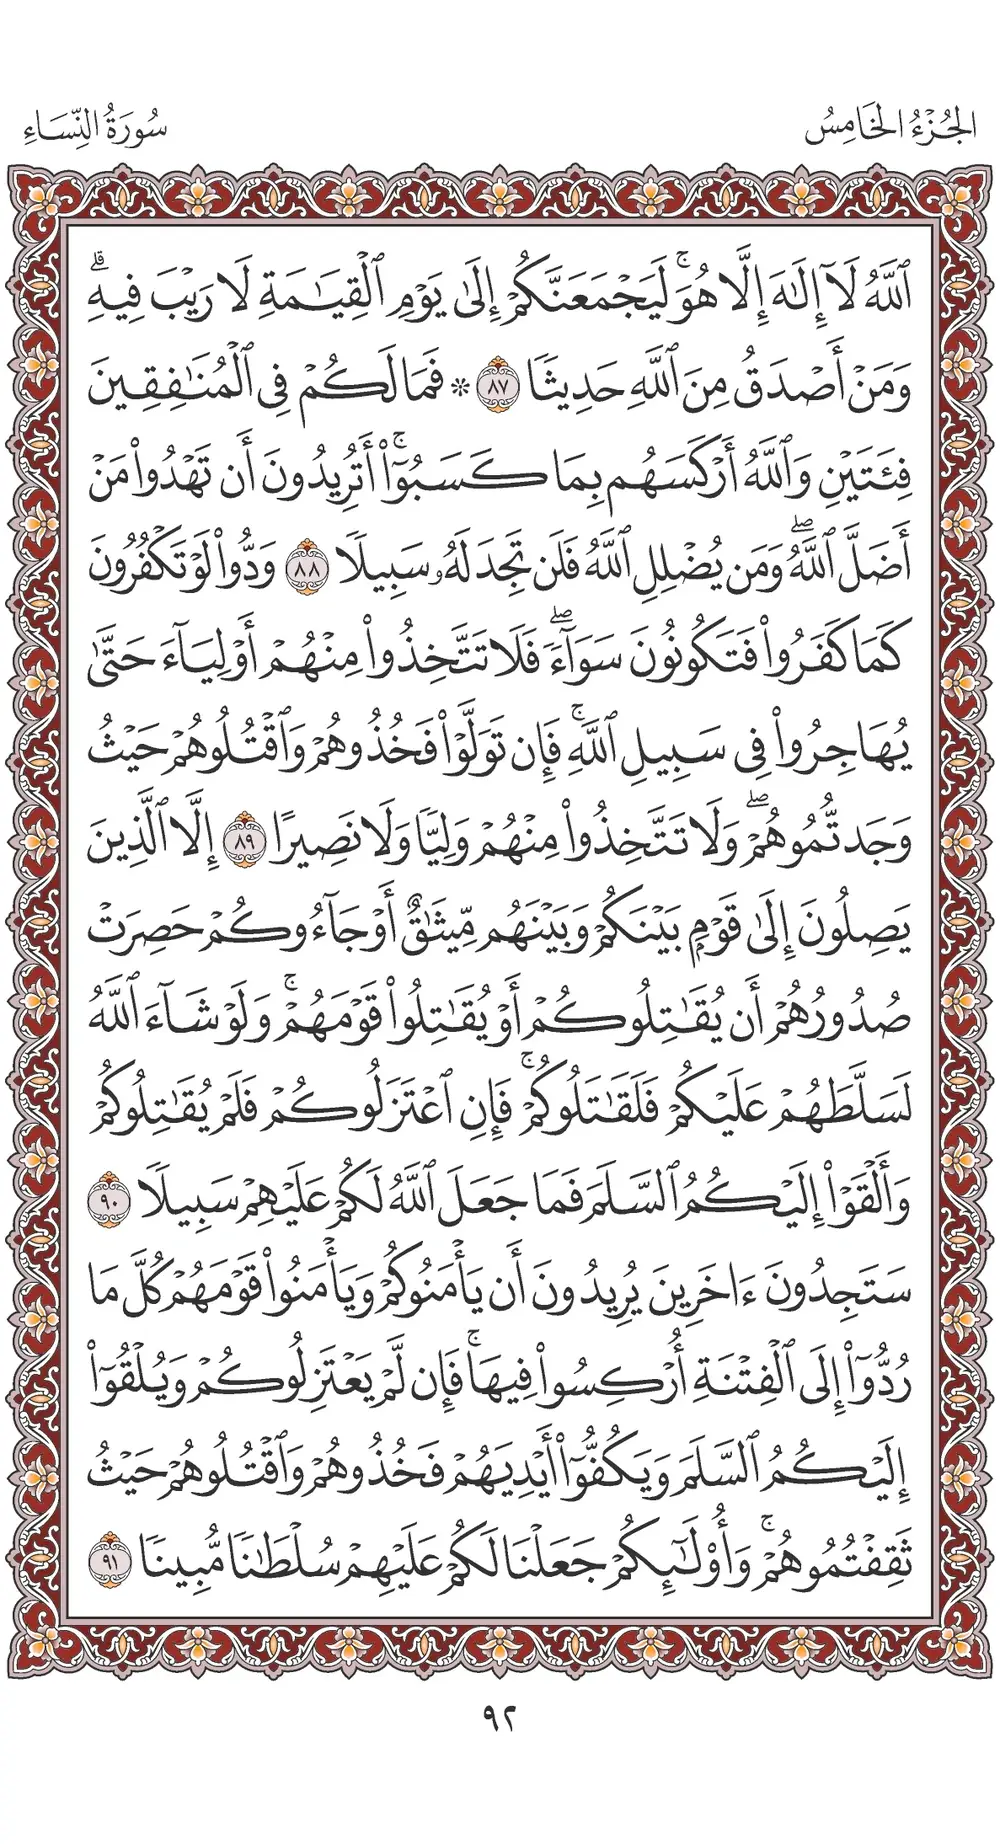 الجُزْءُ الخَامِسُ
سُورَةُ النِّسَاءِ
ٱللَّهُ لَآ إِلَٰهَ إِلَّا هُوَۚ لَيَجۡمَعَنَّكُمۡ إِلَىٰ يَوۡمِ ٱلۡقِيَٰمَةِ لَا رَيۡبَ فِيهِۗ
وَمَنۡ أَصۡدَقُ مِنَ ٱللَّهِ حَدِيثٗا ٨٧ ۞ فَمَا لَكُمۡ فِي ٱلۡمُنَٰفِقِينَ
فِئَتَيۡنِ وَٱللَّهُ أَرۡكَسَهُم بِمَا كَسَبُوٓاْۚ أَتُرِيدُونَ أَن تَهۡدُواْ مَنۡ
أَضَلَّ ٱللَّهُۖ وَمَن يُضۡلِلِ ٱللَّهُ فَلَن تَجِدَ لَهُۥ سَبِيلٗا ٨٨ وَدُّواْ لَوۡ تَكۡفُرُونَ
كَمَا كَفَرُواْ فَتَكُونُونَ سَوَآءٗۖ فَلَا تَتَّخِذُواْ مِنۡهُمۡ أَوۡلِيَآءَ حَتَّىٰ
يُهَاجِرُواْ فِي سَبِيلِ ٱللَّهِۚ فَإِن تَوَلَّوۡاْ فَخُذُوهُمۡ وَٱقۡتُلُوهُمۡ حَيۡثُ
وَجَدتُّمُوهُمۡۖ وَلَا تَتَّخِذُواْ مِنۡهُمۡ وَلِيّٗا وَلَا نَصِيرًا ٨٩ إِلَّا ٱلَّذِينَ
يَصِلُونَ إِلَىٰ قَوۡمِۭ بَيۡنَكُمۡ وَبَيۡنَهُم مِّيثَٰقٌ أَوۡ جَآءُوكُمۡ حَصِرَتۡ
صُدُورُهُمۡ أَن يُقَٰتِلُوكُمۡ أَوۡ يُقَٰتِلُواْ قَوۡمَهُمۡۚ وَلَوۡ شَآءَ ٱللَّهُ
لَسَلَّطَهُمۡ عَلَيۡكُمۡ فَلَقَٰتَلُوكُمۡۚ فَإِنِ ٱعۡتَزَلُوكُمۡ فَلَمۡ يُقَٰتِلُوكُمۡ
وَأَلۡقَوۡاْ إِلَيۡكُمُ ٱلسَّلَمَ فَمَا جَعَلَ ٱللَّهُ لَكُمۡ عَلَيۡهِمۡ سَبِيلٗا ٩٠
سَتَجِدُونَ ءَاخَرِينَ يُرِيدُونَ أَن يَأۡمَنُوكُمۡ وَيَأۡمَنُواْ قَوۡمَهُمۡ كُلَّ مَا
رُدُّوٓاْ إِلَى ٱلۡفِتۡنَةِ أُرۡكِسُواْ فِيهَاۚ فَإِن لَّمۡ يَعۡتَزِلُوكُمۡ وَيُلۡقُوٓاْ
إِلَيۡكُمُ ٱلسَّلَمَ وَيَكُفُّوٓاْ أَيۡدِيَهُمۡ فَخُذُوهُمۡ وَٱقۡتُلُوهُمۡ حَيۡثُ
ثَقِفۡتُمُوهُمۡۚ وَأُوْلَٰٓئِكُمۡ جَعَلۡنَا لَكُمۡ عَلَيۡهِمۡ سُلۡطَٰنٗا مُّبِينٗا ٩١
٩٢